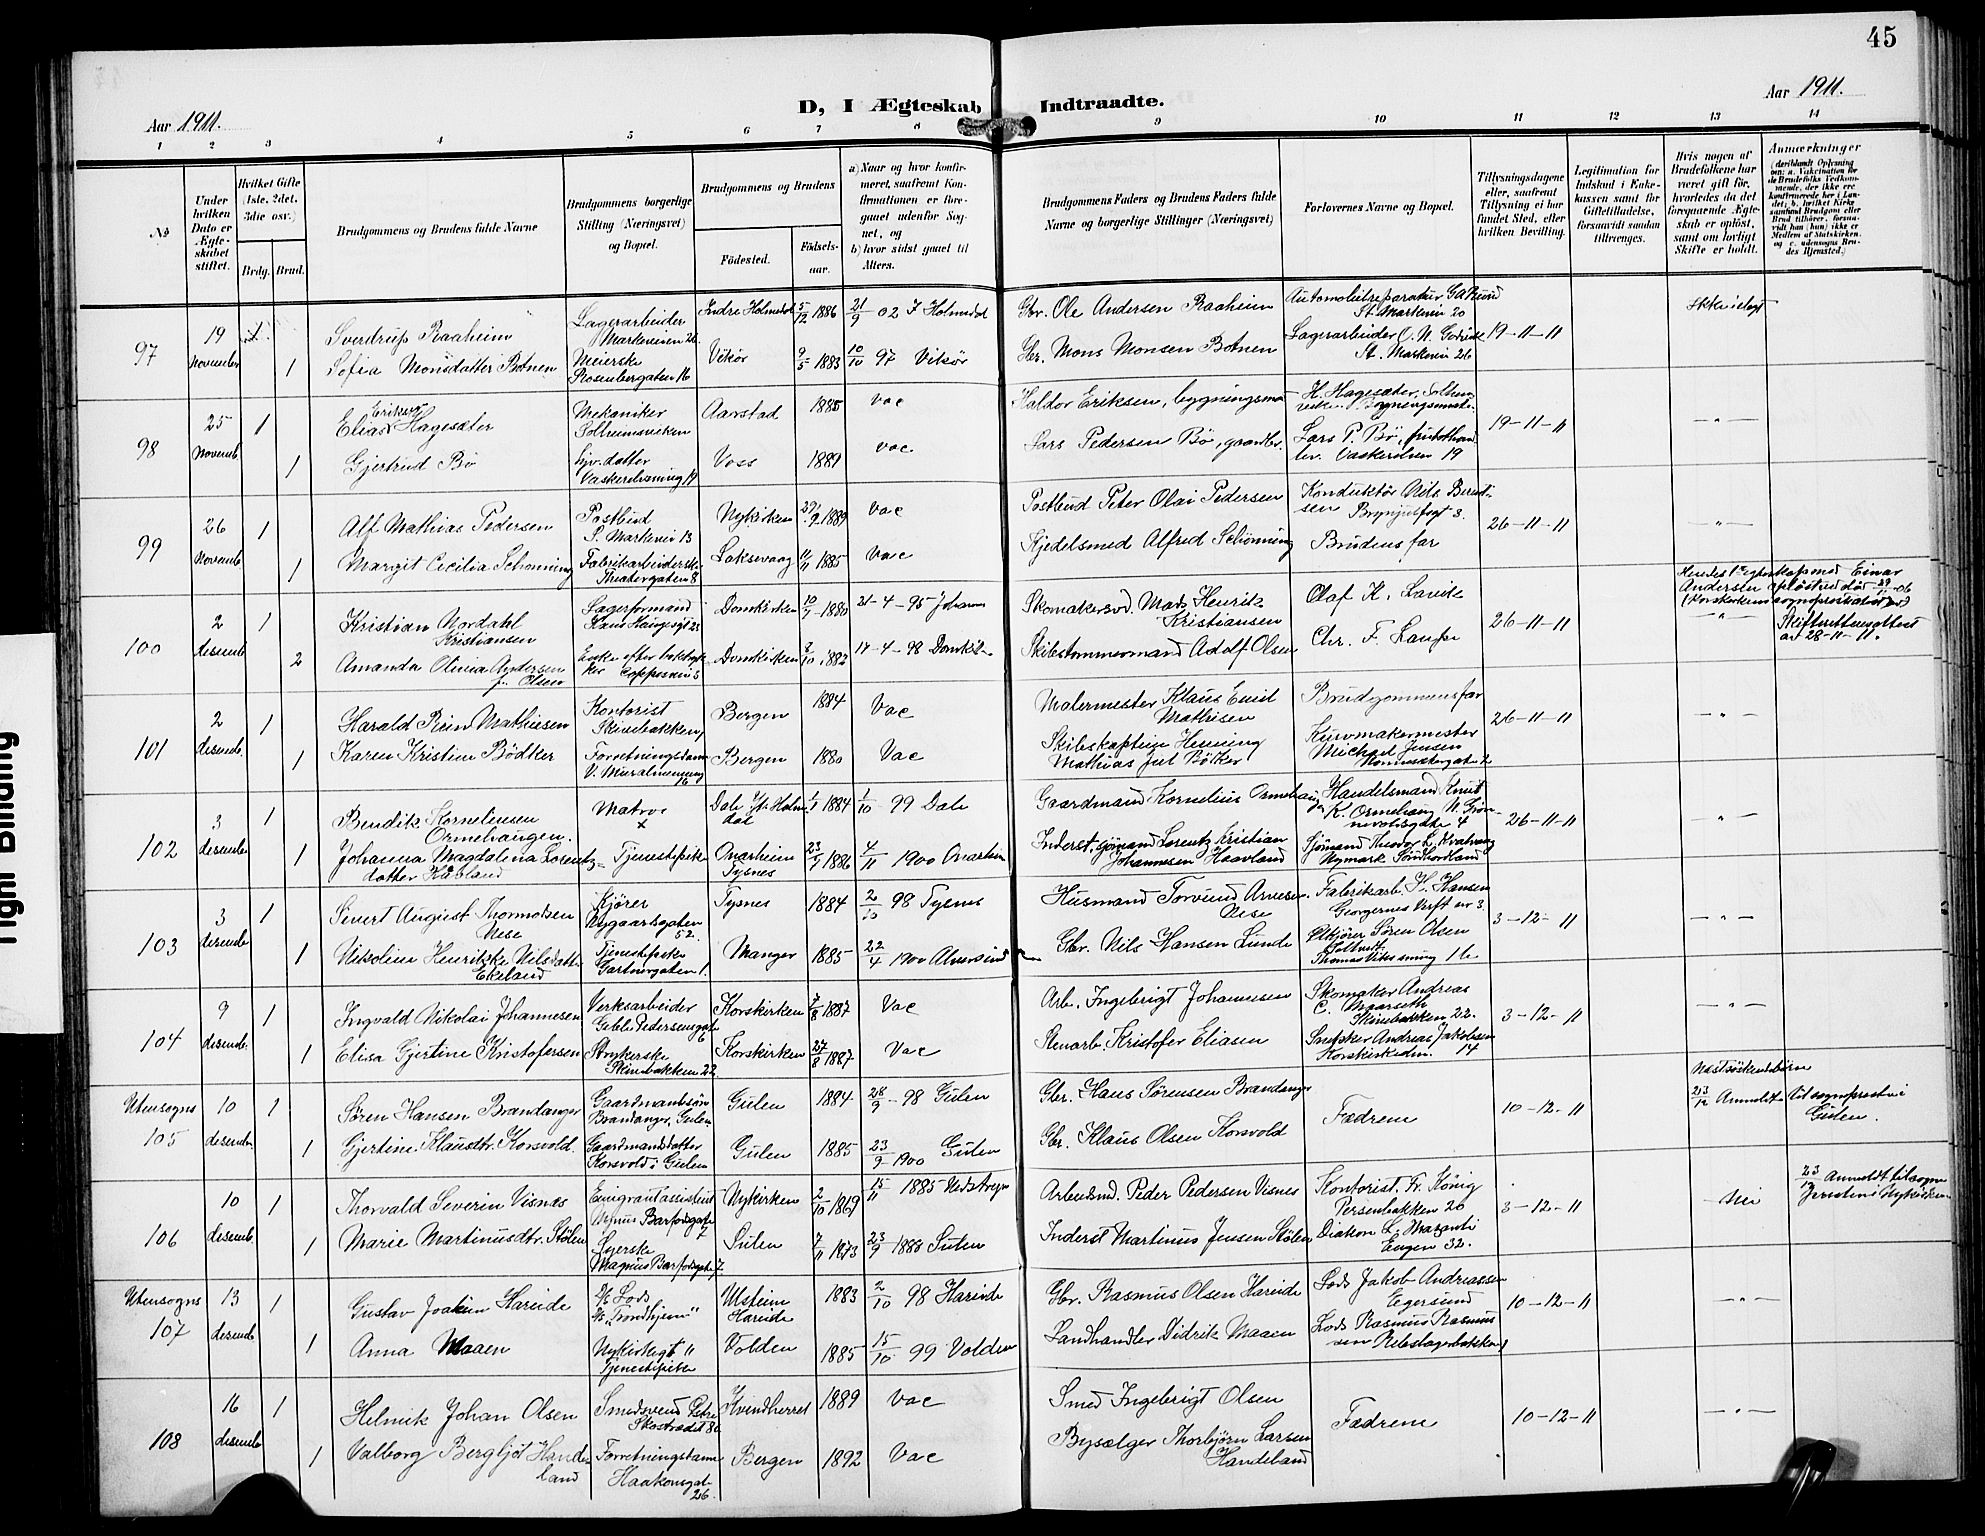 45
Aar 1911.
D, I Ægteskab Indtraadte.
Aar 1911.
1 2 3 4 5 6 7 8 9 10 11 12 13 14
No
Under hvilken Dato er Ægteskabet stiftet.
Hvilket Gifte (1ste, 2det, 3die osv.)
Brdg. Brud.
Brudgommens og Brudens fulde Navne
Brudgommens borgerlige Stilling (Næringsvei) og Bopæl.
Brudgommens og Brudens
Födested. Födsels-aar.
a) Naar og hvor konfirmeret, saafremt Konfirmationen er foregaaet udenfor Sognet, og
b) hvor sidst gaaet til Alters.
Brudgommens Faders og Brudens Faders fulde Navne og borgerlige Stillinger (Næringsvei)
Forlovernes Navne og Bopæl.
Tillysningsdagene eller, saafremt Tillysning ei har fundet Sted, efter hvilken Bevilling.
Legitimation for Indskud i Enkekassen samt for Giftetilladelse, forsaavidt saadan tiltrænges.
Hvis nogen af Brudefolkene har været gift för, hvorledes da det foregaaende Ægteskab er oplöst, samt om lovligt Skifte er holdt.
Anmærkninger
97 19 November 1 Sverdrup Raaheim Lagerarbeider Markeveien 26 Indre Holmedal 5/12 1886 21/9 02 I Holmedal Gbr. Ole Andersen Raaheim Automobilreparatør St. Markevei 20 19-11-11 Ikke i slegt
1 Sofia Monsdatter Botnen Meierske Rosenbergaten 16 Vikør 9/5 1883 10/10 97 Vikør Gbr. Mons Monsen Botnen Lagerarbeider St. Markevei 26
98 25 Novemb. 1 Elias Eriksen Hagesæter Mekaniker Solheimsviken Aarstad 1885 vac Haldor Eriksen, bygningsm. H. Hagesæter, Solheimsviken 19-11-11 -"-
1 Gjertrud Bø datter Voss 1889 vac Lars Pedersen Bø, gaardbr. Lars P. Bø, 19
99 26 Novemb. 1 Alf Mathias Pedersen Postbud S. Markevei 13 Nykirken 29/9 1889 vac Postbud Peter Olai Pedersen Konduktør Nils Berentsen 3. 26-11-11 -"-
1 Margit Cecilia Schønning Fabrikarbeiderske Theatergaten 8 Laksevaag 11/11 1885 vac Kjedelsmed Alfred Schönning Brudens far
100 2 desemb. 1 Kristian Nordahl Kristiansen Lagerformand Domkirken 10/7 1880 21-4-95 Johannes Skomakersvd. Mads Henrik Kristiansen Olaf K. 26-11-11 -"-
Hendes 1ste egteskap med Einar Andersen opløst ved død 29/11-06
Skifterettens attest av 28-11-11.
2 Amanda Olinia Andersen f. Olsen Enke efter Domkirken 8/10 1882 17-4-98 Domkirk. Skibstømmermand Adolf Olsen Chr. F.
101 2 desemb. 1 Harald Riim Mathiesen Kontorist Skivebakken Bergen 1884 vac Malermester Klaus Emil Mathisen Brudgommens far 26-11-11 -"-
1 Karen Kristine Bödtker Forretningsdame 16 Bergen 1880 Vac Skibskaptein Henning Mathias Juel Bötker Kurvmakermester Michael Jensen
102 3 desemb. 1 Bendik Kornelinsen Ormehaugen. Matros x Dale Holmedal 1/1 1884 1/10 99 Dale Gaardmand Kornelius Ormehaug Handelsmand Knut K. Ormehaug 4 26-11-11 -"-
1 Johanna Magdalena Lorentzdatter Haavland Tjenestepike Onarheim Tysnes 23/5 1886 4/11 1900 Onarheim Inderst, sjømand Lorentz Kristian Johannesen Haavland Sjømand Theodor L. Kvalvaag Nymark Søndhordland
103 3 desemb. 1 Sivert August Thormodsen Nese Kjører Nygaardsgaten 52. Tysnes 1884 2/10 98 Tysnes Husmand Torvund Arnesen Nese Fabrikarb. H. Hansen Georgernes Verft nr 3. 3-12-11 -"-
1 Nikoline Henrikke Nilsdatt. Ekeland Tjenestepike Gartnergaten 1. Manger 1885 22/4 1900 Alversund Gbr. Nils Hansen Lunde Ølkjører Søren Olsen
104 9 desemb. 1 Ingvald Nikolai Johannesen Verksarbeider Geble Pedersensgt. 6 Korskirken 7/8 1887 vac Arb. Ingebrigt Johannesen Skomaker Andreas C. Skivebakken 22. 3-12-11 -"-
1 Elisa Gjertine Kristofersen Strykerske Skivebakken 22 Korskirken 27/8 1887 vac Stenarb. Kristofer Eliasen Snepker Andreas Jakobsen 14
Utensogns 105 10 desemb. 1 Søren Hansen Brandanger Gaardmandssøn Brandanger, Gulen Gulen 1884 28/9 - 98 Gulen Gbr. Hans Sørensen Brandanger Fædrene 10-12-11 Næstsöskendebörn
23/12 Anmeldt til sogneprest i Gulen.
1 Gjertine Klausdtr. Korsvold Gaardmandsdatter Korsvold i Gulen Gulen 1885 23/9 1900 Gulen Gbr. Klaus Olsen Korsvold
106 10 desemb. 1 Thorvald Severin Visnæs Emigrantassistent Magnus Barfodsgate 7 Nykirken 2/10 1861 15/11 1885 Gbr. Arbeidsmd. Peder Pedersen Visnes Kontorist. Fr. König Persenbakken 20 3-12-11 Nei 23/12 Anmeldt til sogneprest i Nykirken
1 Marie Martinusdtr. Stölen Syerske Magnus Barfodsgate 7. Sulen 7/11 1873 23/9 1888 Sulen Inderst Martinus Jensen Stölen Diakon L. Mazanti Engen 32.
Utensogns 107 13 desemb. 1 Gustav Joakim Hareide Lods "Trondhjem" Ulstein Hareide 1883 2/10 98 Hareide Gbr. Rasmus Olsen Hareide Lods Jakob Andreassen Egersund 10-12-11 -"-
1 Anna Maaen Nykirkegt 11 Tjenestepike Volden 1885 15/10 99 Volden Landhandler Didrik Maaen Lods Rasmus Rasmussen Rebslagerbakken
108 16 desemb. 1 Helmik Johan Olsen Smedsvend Østre Skostrædet 8 Kvindherret 1889 vac Smed Ingebrigt Olsen Fædrene 10-12-11 -"-
1 Valborg Bergljot Handeland Forretningsdame Haakonsgat. 26. Bergen 1892 vac Bysælger Thorbjörn Larsen Handeland
Tight Binding